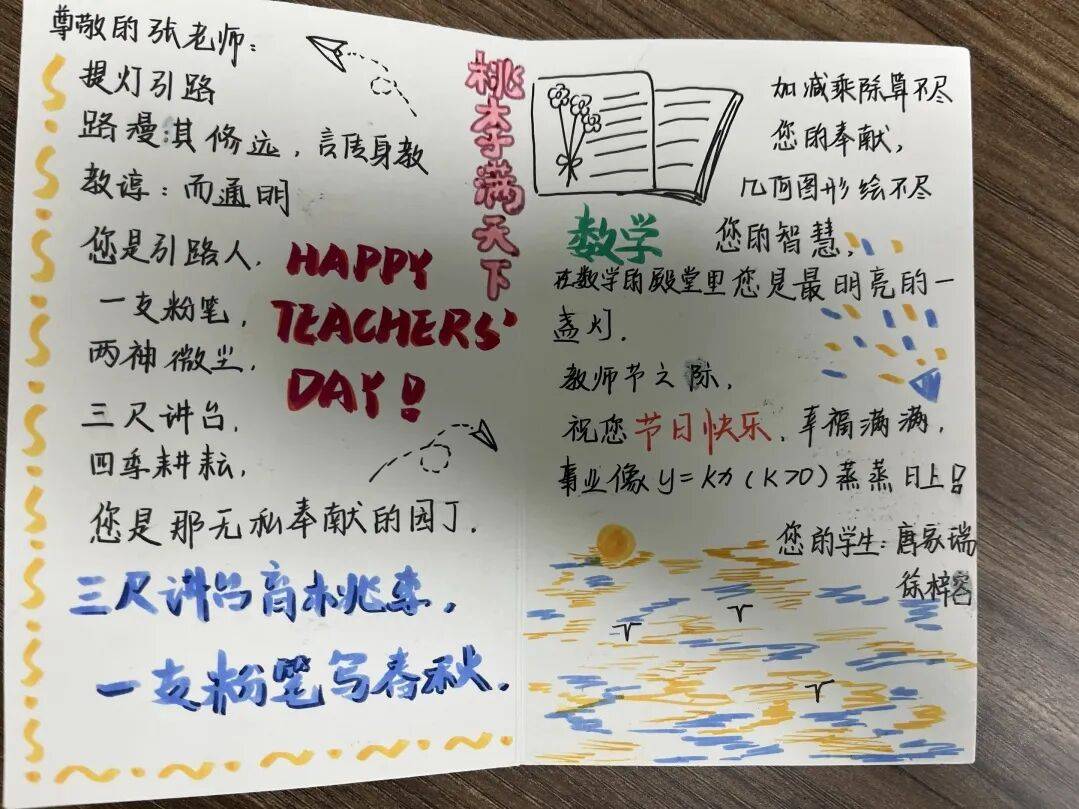 尊敬的张老师：
提灯引路
路漫其修远，言传身教
教谆：而通明
您是引路人，
一支粉笔，
两神微尘，
三尺讲台，
四季耕耘，
您是那无私奉献的园丁．
HAPPY
TEACHERS'
DAY!
三尺讲台育桃李，
一支粉笔写春秋．
桃李满天下
加减乘除算不尽
您的奉献，
几何图形绘不尽
数学
您的智慧，
在数学的殿堂里您是最明亮的一
盏灯．
教师节之际，
祝您节日快乐，幸福满满，
事业像y=kx(k>0)蒸蒸日上！
您的学生：唐家瑞
徐梓容